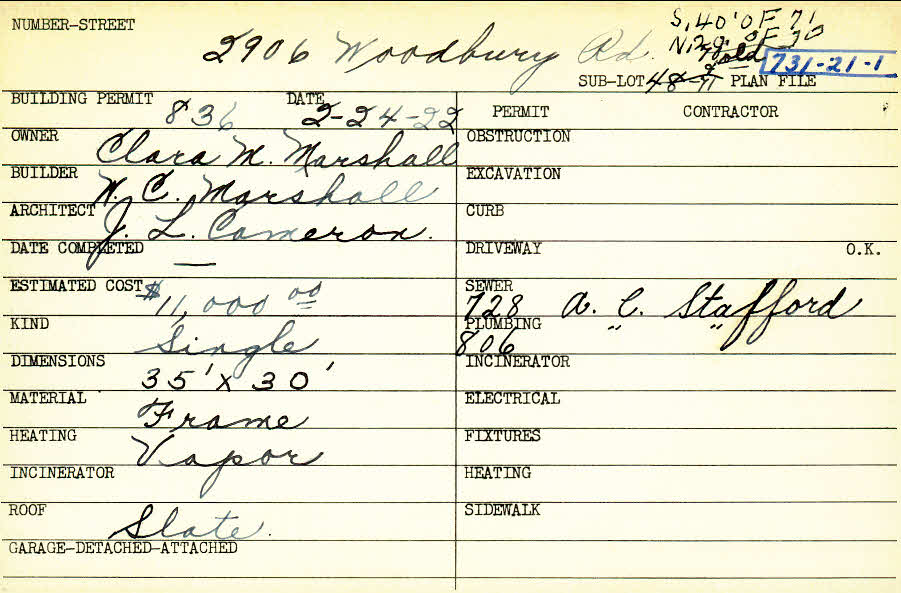 NUMBER-STREET
2906 Woodbury Rd.
S. 40' OF 71
N. 29' OF 70
old
731-21-1
SUB-LOT 48-71 PLAN FILE
BUILDING PERMIT 836 DATE 2-24-22
PERMIT CONTRACTOR
OWNER Clara M. Marshall
OBSTRUCTION
BUILDER W. C. Marshall
EXCAVATION
ARCHITECT J. L. Cameron.
CURB
DATE COMPLETED —
DRIVEWAY O.K.
ESTIMATED COST $11,000 00
SEWER 728 A. C. Stafford
KIND Single
PLUMBING 806 " "
DIMENSIONS 35' x 30'
INCINERATOR
MATERIAL Frame
ELECTRICAL
HEATING Vapor
FIXTURES
INCINERATOR
HEATING
ROOF Slate.
SIDEWALK
GARAGE-DETACHED-ATTACHED